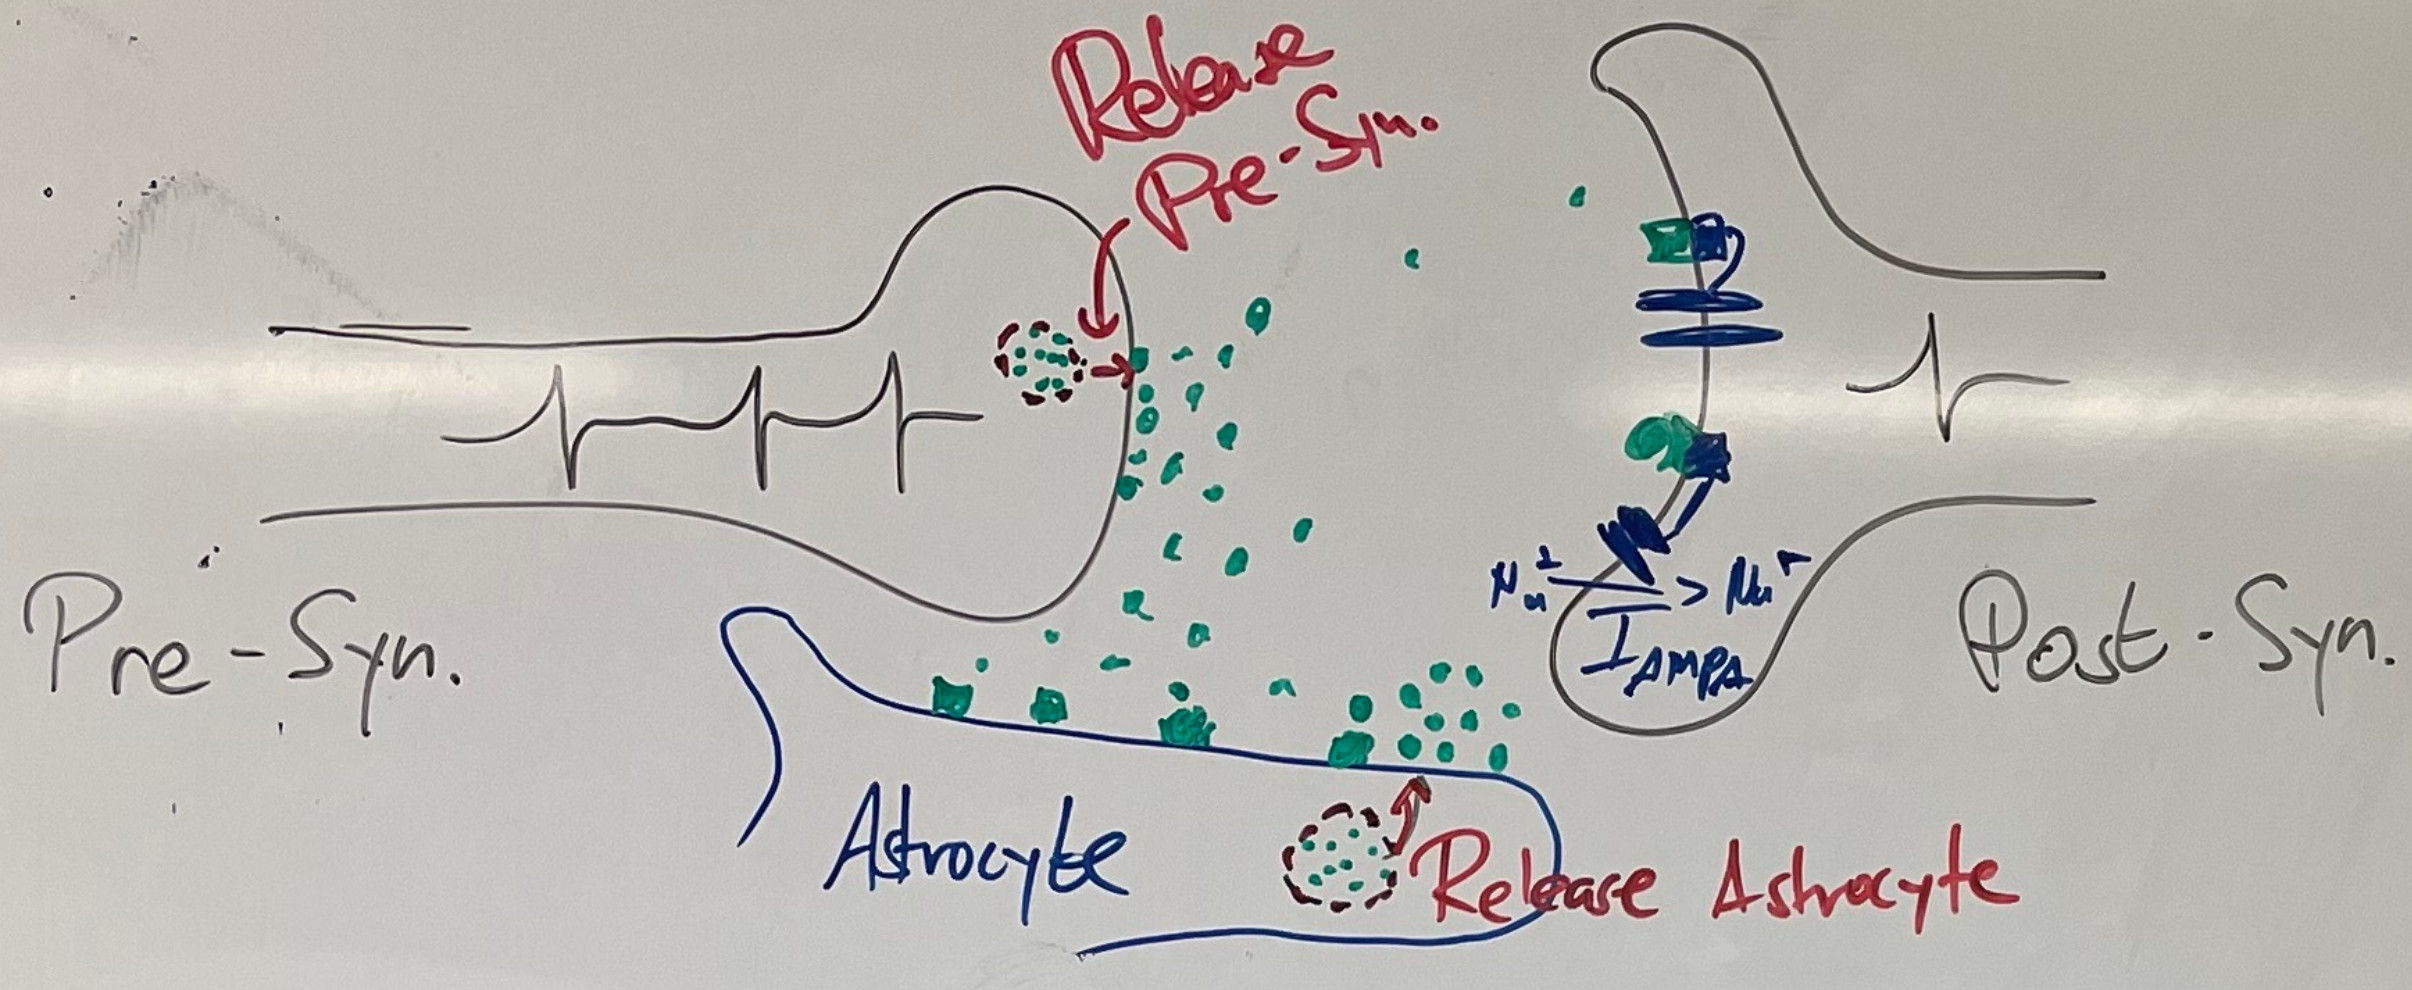 Release
Pre-Syn.
Pre-Syn.
Na⁺ > Na⁺
I AMPA
Post-Syn.
Astrocyte
Release Astrocyte